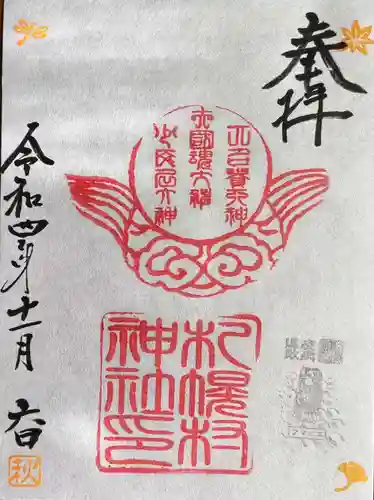 奉拝
大己貴大神
大国魂大神
少彦名大神
札幌村
神社印
令和四年十一月六日
秋